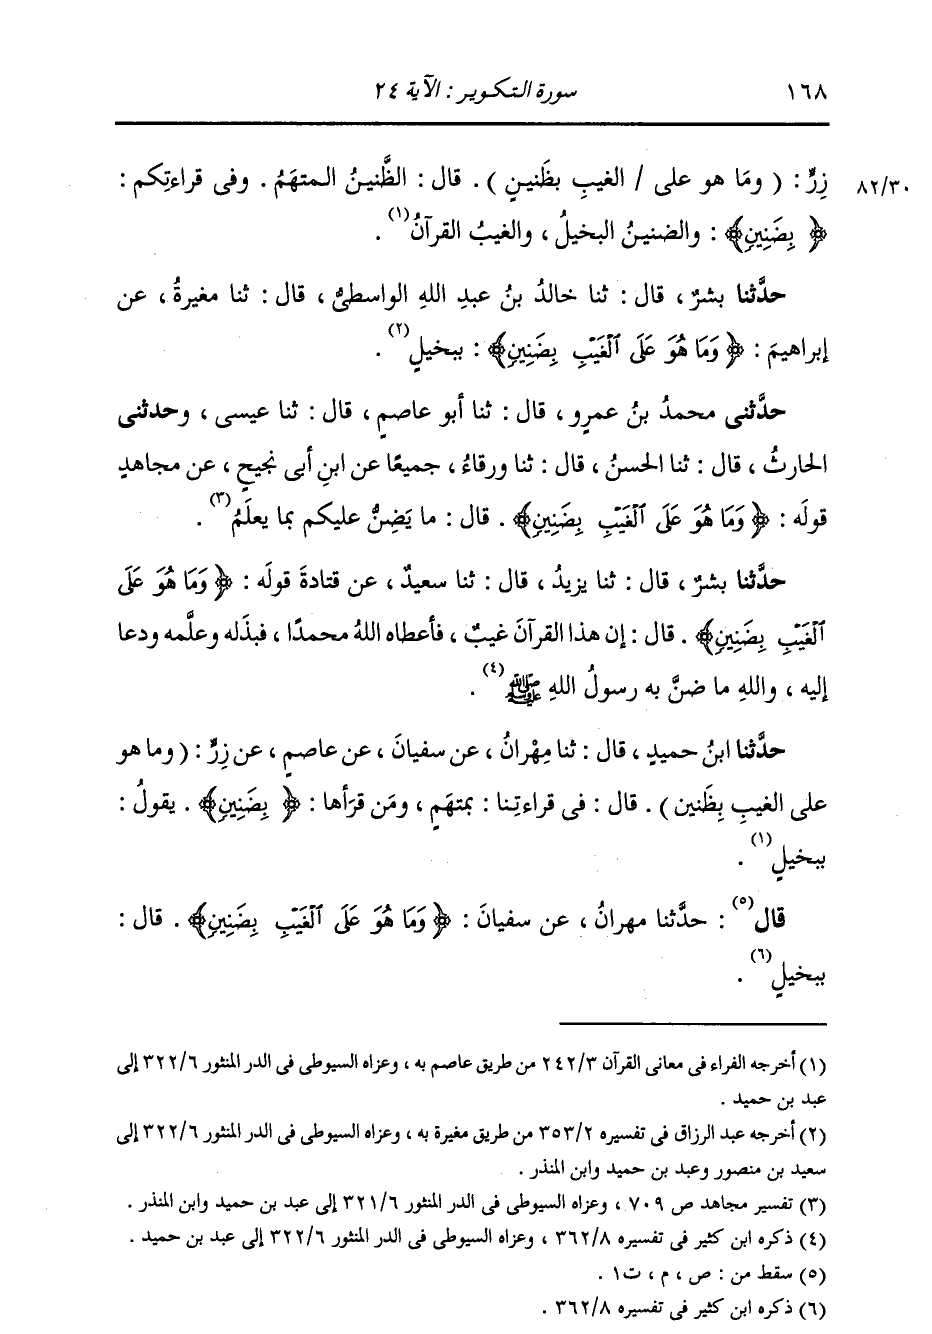 ١٦٨ سورة التكوير : الآية ٢٤
٨٢/٣٠ زِرٍّ : ( ومَا هو على / الغيبِ بظَنينٍ ) . قال : الظَّنينُ المتهَمُ . وفى قراءتِكم :
﴿ بِضَنِينٍ ﴾ : والضنينُ البخيلُ ، والغيبُ القرآنُ(١) .
حدَّثنا بشرٌ ، قال : ثنا خالدُ بنُ عبدِ اللهِ الواسطىُّ ، قال : ثنا مغيرةُ ، عن
إبراهيمَ : ﴿ وَمَا هُوَ عَلَى ٱلْغَيْبِ بِضَنِينٍ ﴾ : ببخيلٍ(٢) .
حدَّثنى محمدُ بنُ عمرٍو ، قال : ثنا أبو عاصمٍ ، قال : ثنا عيسى ، وحدثنى
الحارثُ ، قال : ثنا الحسنُ ، قال : ثنا ورقاءُ ، جميعًا عن ابنِ أبى نجيحٍ ، عن مجاهدٍ
قولَه : ﴿ وَمَا هُوَ عَلَى ٱلْغَيْبِ بِضَنِينٍ ﴾ . قال : ما يَضِنُّ عليكم بما يعلَمُ(٣) .
حدَّثنا بشرٌ ، قال : ثنا يزيدُ ، قال : ثنا سعيدٌ ، عن قتادةَ قولَه : ﴿ وَمَا هُوَ عَلَى
ٱلْغَيْبِ بِضَنِينٍ ﴾ . قال : إن هذا القرآنَ غيبٌ ، فأعطاه اللهُ محمدًا ، فبذَله وعلَّمه ودعا
إليه ، واللهِ ما ضنَّ به رسولُ اللهِ ﷺ(٤) .
حدَّثنا ابنُ حميدٍ ، قال : ثنا مِهْرانُ ، عن سفيانَ ، عن عاصمٍ ، عن زِرٍّ : ( وما هو
على الغيبِ بِظَنين ) . قال : فى قراءتِنا : بمتهَمٍ ، ومَن قرَأها : ﴿ بِضَنِينٍ ﴾ . يقولُ :
ببخيلٍ(١) .
قال(٥) : حدَّثنا مهرانُ ، عن سفيانَ : ﴿ وَمَا هُوَ عَلَى ٱلْغَيْبِ بِضَنِينٍ ﴾ . قال :
ببخيلٍ(٦) .
(١) أخرجه الفراء فى معانى القرآن ٢٤٢/٣ من طريق عاصم به ، وعزاه السيوطى فى الدر المنثور ٣٢٢/٦ إلى
عبد بن حميد .
(٢) أخرجه عبد الرزاق فى تفسيره ٣٥٣/٢ من طريق مغيرة به ، وعزاه السيوطى فى الدر المنثور ٣٢٢/٦ إلى
سعيد بن منصور وعبد بن حميد وابن المنذر .
(٣) تفسير مجاهد ص ٧٠٩ ، وعزاه السيوطى فى الدر المنثور ٣٢١/٦ إلى عبد بن حميد وابن المنذر .
(٤) ذكره ابن كثير فى تفسيره ٣٦٢/٨ ، وعزاه السيوطى فى الدر المنثور ٣٢٢/٦ إلى عبد بن حميد .
(٥) سقط من : ص ، م ، ت١ .
(٦) ذكره ابن كثير فى تفسيره ٣٦٢/٨ .